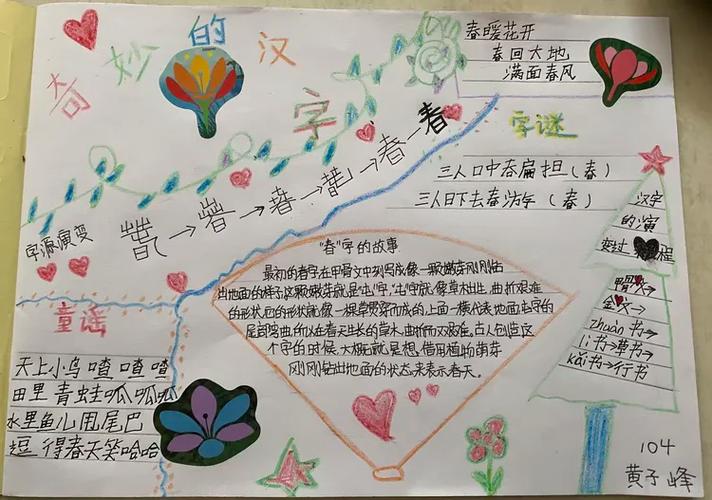 奇妙的汉字
春暖花开
春回大地
满面春风
字谜
三人口中吞扁担(春)
三人日下去春游乐(春)
字源演变
→ → → → 春 → 春
"春"字的故事
最初的春字在甲骨文中列写成像一颗嫩芽刚刚钻
出地面的样子,这颗嫩芽就是"屯"字,"屯"字就像草木出生,曲折艰难
的形状,它的形状就像一根草贯穿而成的,上面一横代表地面,屯字的
尾部弯曲,所以在春天生长的草木,曲折而又艰难,古人创造这
个字的时候,大概就是想借用植物萌芽
刚刚钻出地面的状态,来表示春天。
童谣
天上小鸟喳喳喳
田里青蛙呱呱呱
水里鱼儿甩尾巴
逗得春天笑哈哈
汉字
的演
变过程
甲骨文→
金文→
zhuàn书→
li书→草书→
kǎi书→行书
104
黄子峰